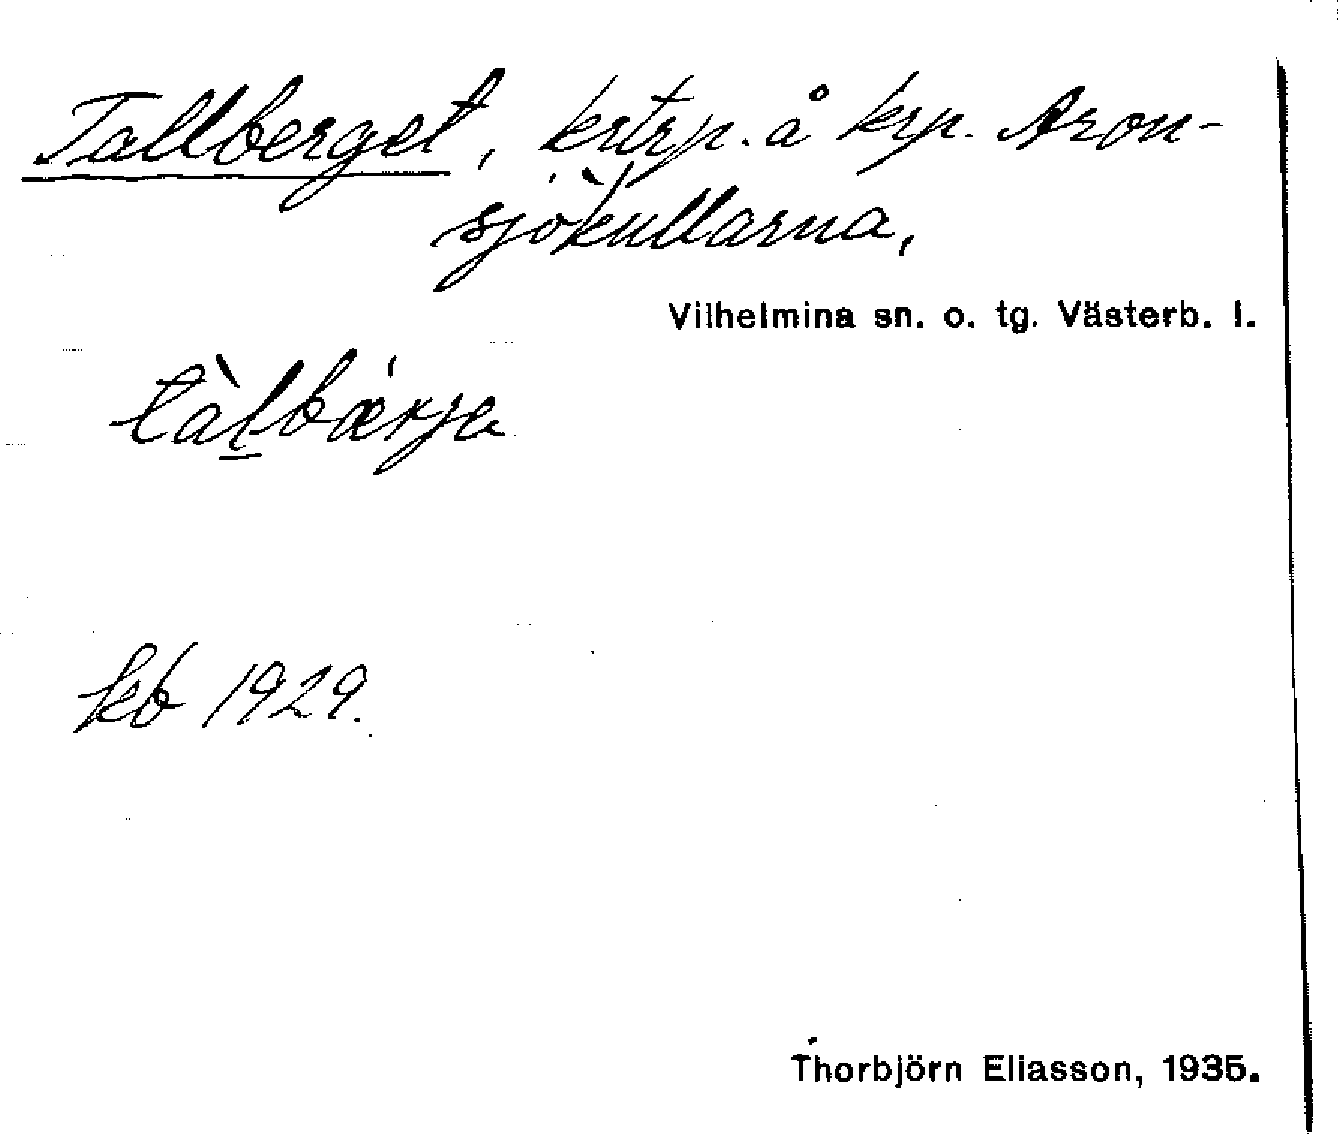 Tallberget, krtrp. å krp. Aron-
sjökullarna,
Vilhelmina sn. o. tg. Västerb. l.
tàḻbær̀ja
kb 1929.
Thorbjörn Eliasson, 1935.